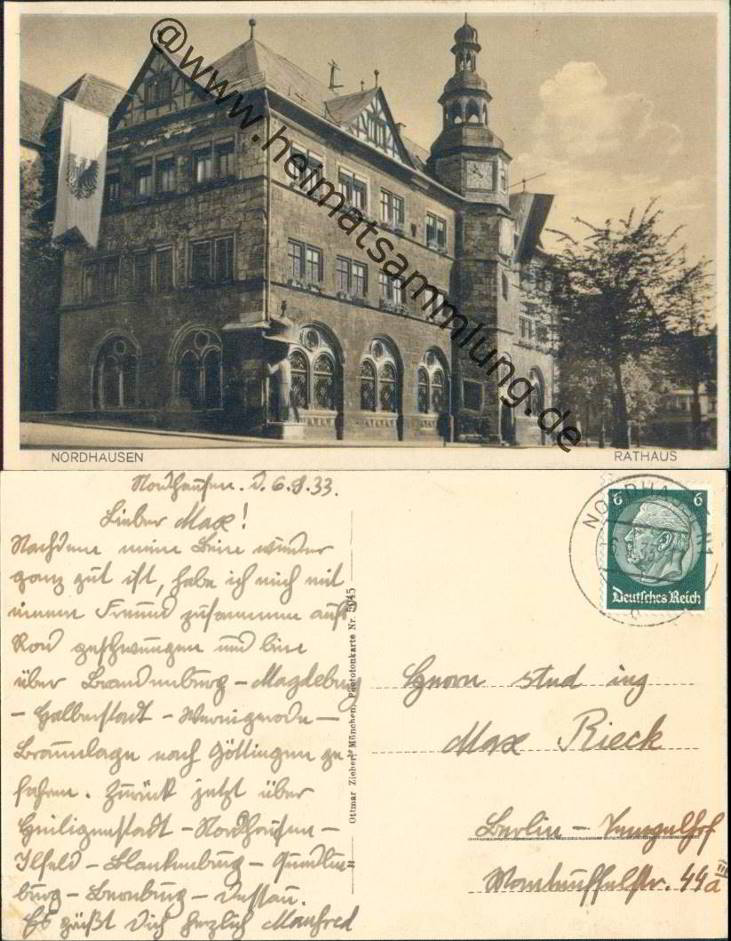 @www.heimatsammlung.de
NORDHAUSEN
RATHAUS
Nordhausen. d. 6.9.33.
Lieber Max!
Nachdem meine Beine wieder
ganz gut ist, habe ich mich mit
einem Freund zusammen aufs
Rad geschwungen und bin
über Brandenburg – Magdeburg
– Halberstadt – Wernigerode –
Braunlage nach Göttingen ge-
fahren. Zurück jetzt über
Heiligenstadt – Nordhausen –
Ilfeld – Blankenburg – Quedlin=
burg – Bernburg – Dessau.
Es grüßt Dich herzlich Manfred
Ottmar Zieher, München, Photonkarte Nr. 5045
NORDHAUSEN
6 6
Deutsches Reich
Herrn stud ing
Max Rieck
Berlin – Tempelhof
Manteuffelstr. 44a III